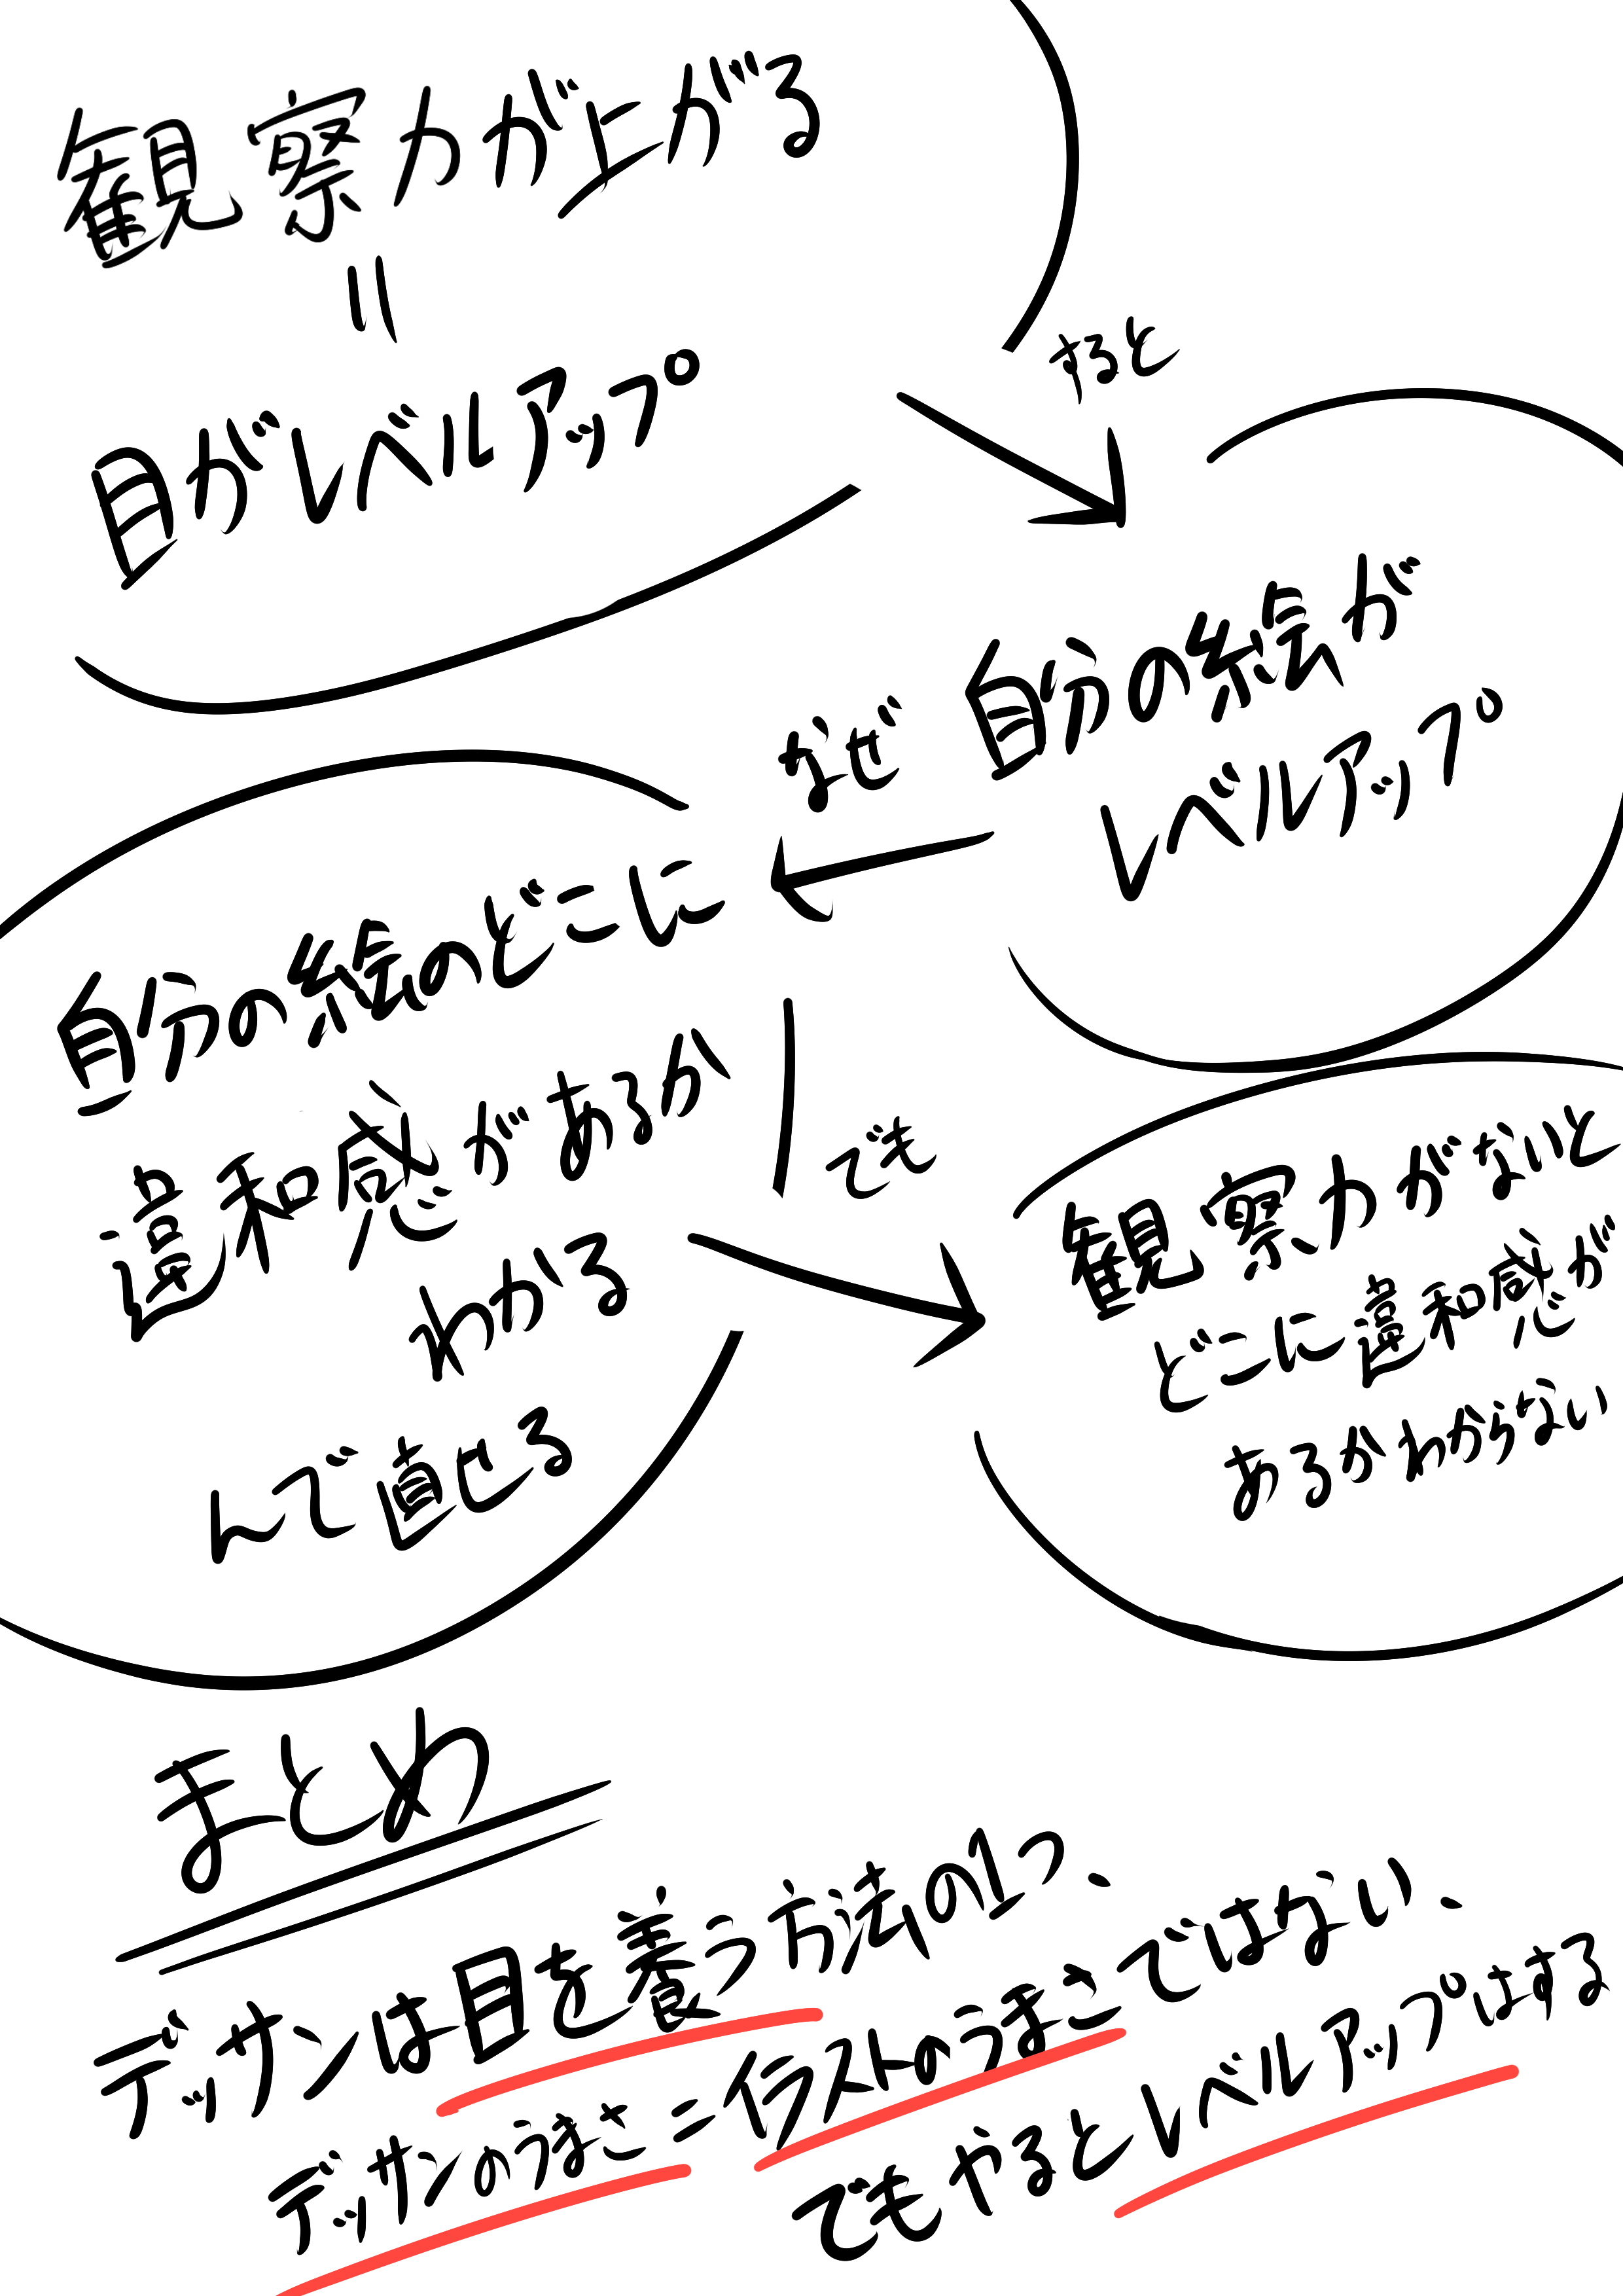 観察力が上がる
=
目がレベルアップ
すると
自分の絵が
レベルアップ
なぜ
自分の絵のどこに
違和感があるか
わかる
んで直せる
でも
観察力がないと
どこに違和感が
あるかわからない
まとめ
デッサンは目を養う方法の1つ、
デッサンのうまさ=イラストのうまさではない、
でもやるとレベルアップはする